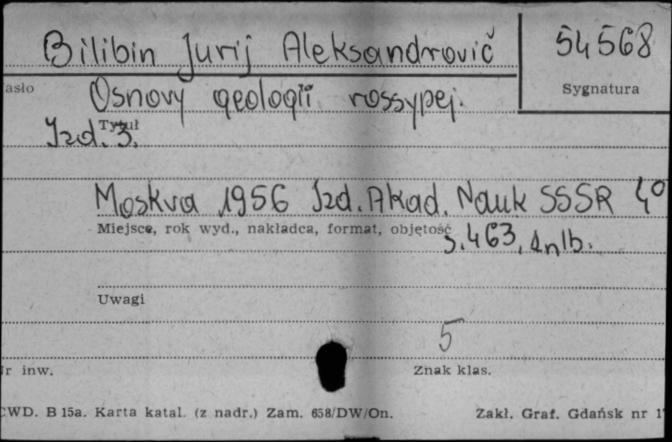 Bilibin Jurij Aleksandrovič
54568
asło
Sygnatura
Osnovy geologii rossypej.
Tytuł
Izd. 3.
Moskva 1956 Izd. Akad. Nauk SSSR 4°
Miejsce, rok wyd., nakładca, format, objętość
s. 463, 1 nlb.
Uwagi
5
Nr inw.
Znak klas.
CWD. B 15a. Karta katal. (z nadr.) Zam. 658/DW/On.
Zakł. Graf. Gdańsk nr 1